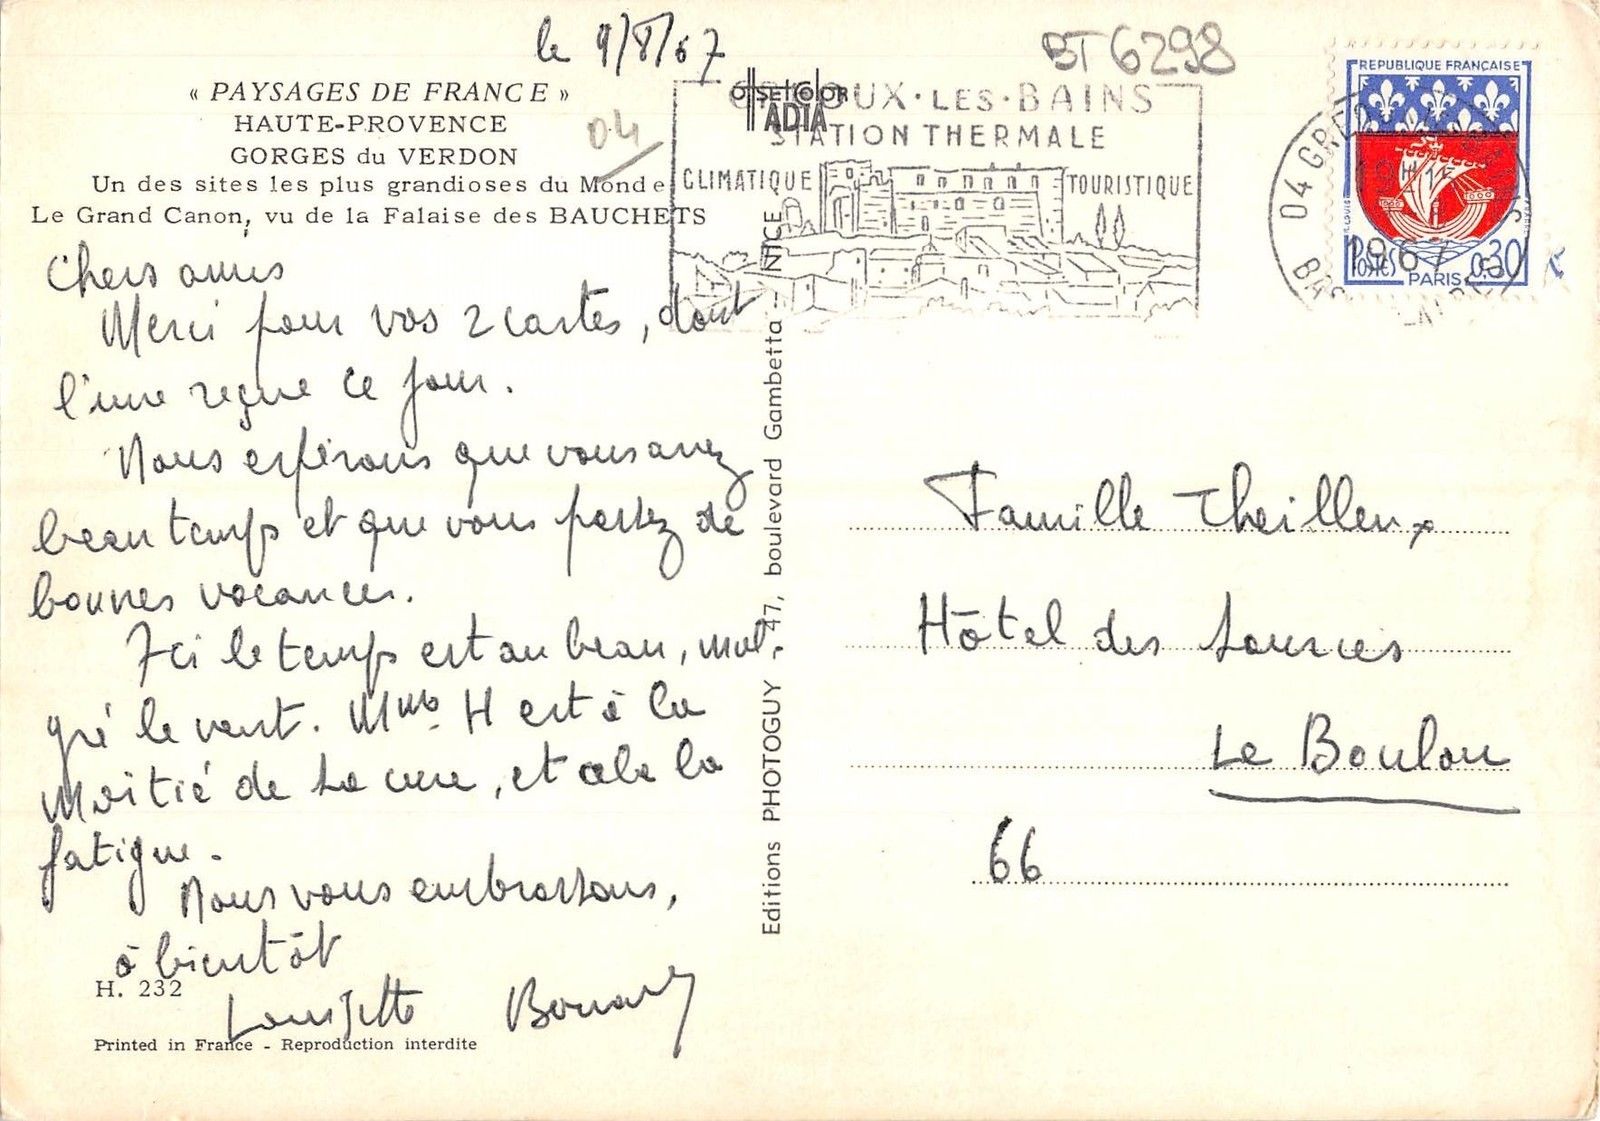 le 9/8/67
BT 6298
« PAYSAGES DE FRANCE »
HAUTE-PROVENCE
GORGES du VERDON
Un des sites les plus grandioses du Monde
Le Grand Canon, vu de la Falaise des BAUCHETS
04
OUX·LES·BAINS
STATION THERMALE
CLIMATIQUE
TOURISTIQUE
04 GRE
1967
REPUBLIQUE FRANÇAISE
POSTES
PARIS
0,30
Chers amis
Merci pour vos 2 cartes, dont
l'une reçue ce jour.
Nous espérons que vous avez
beau temps et que vous passez de
bonnes vacances.
Ici le temps est au beau, mal-
gré le vent. Mme H est à la
moitié de sa cure, et a de la
fatigue.
Nous vous embrassons,
à bientôt
H. 232
Printed in France - Reproduction interdite
Editions PHOTOGUY - 47, boulevard Gambetta - NICE
Famille Theilleux
Hôtel des Sources
Le Boulou
66